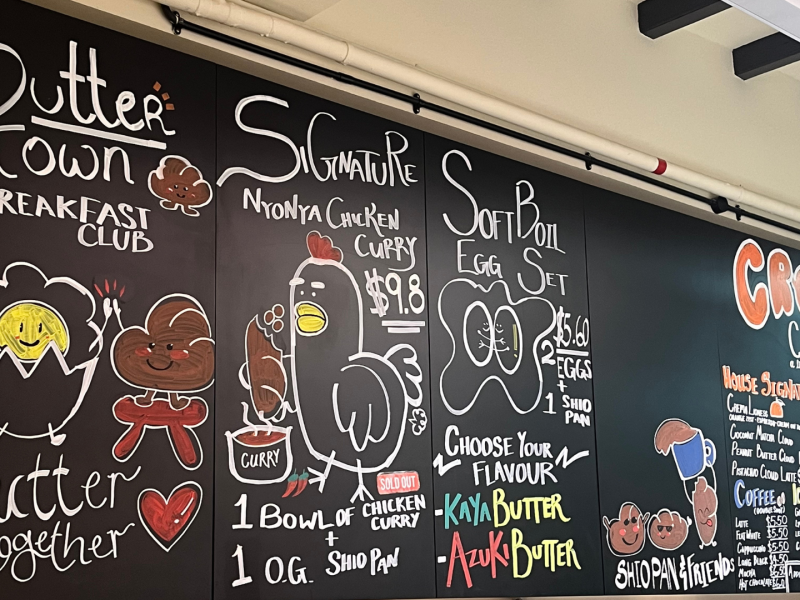 Butter
Town
BREAKFAST
CLUB
Butter
Together
SIGNATURE
NYONYA CHICKEN
CURRY
$9.8
CURRY
SOLD OUT
1 BOWL OF CHICKEN
CURRY
+
1 O.G. SHIO PAN
SOFT BOIL
EGG SET
$5.60
2 EGGS
+
1 SHIO
PAN
CHOOSE YOUR
FLAVOUR
-KAYA BUTTER
-AZUKI BUTTER
SHIOPAN & FRIENDS
HOUSE SIGNA
COCONUT MATCHA CLOUD
PEANUT BUTTER CLOUD
PISTACHIO CLOUD LATTE
COFFEE
LATTE $5.50
FLAT WHITE $5.50
CAPPUCCINO $5.50
LONG BLACK $4.50
MOCHA
HOT CHOCOLATE